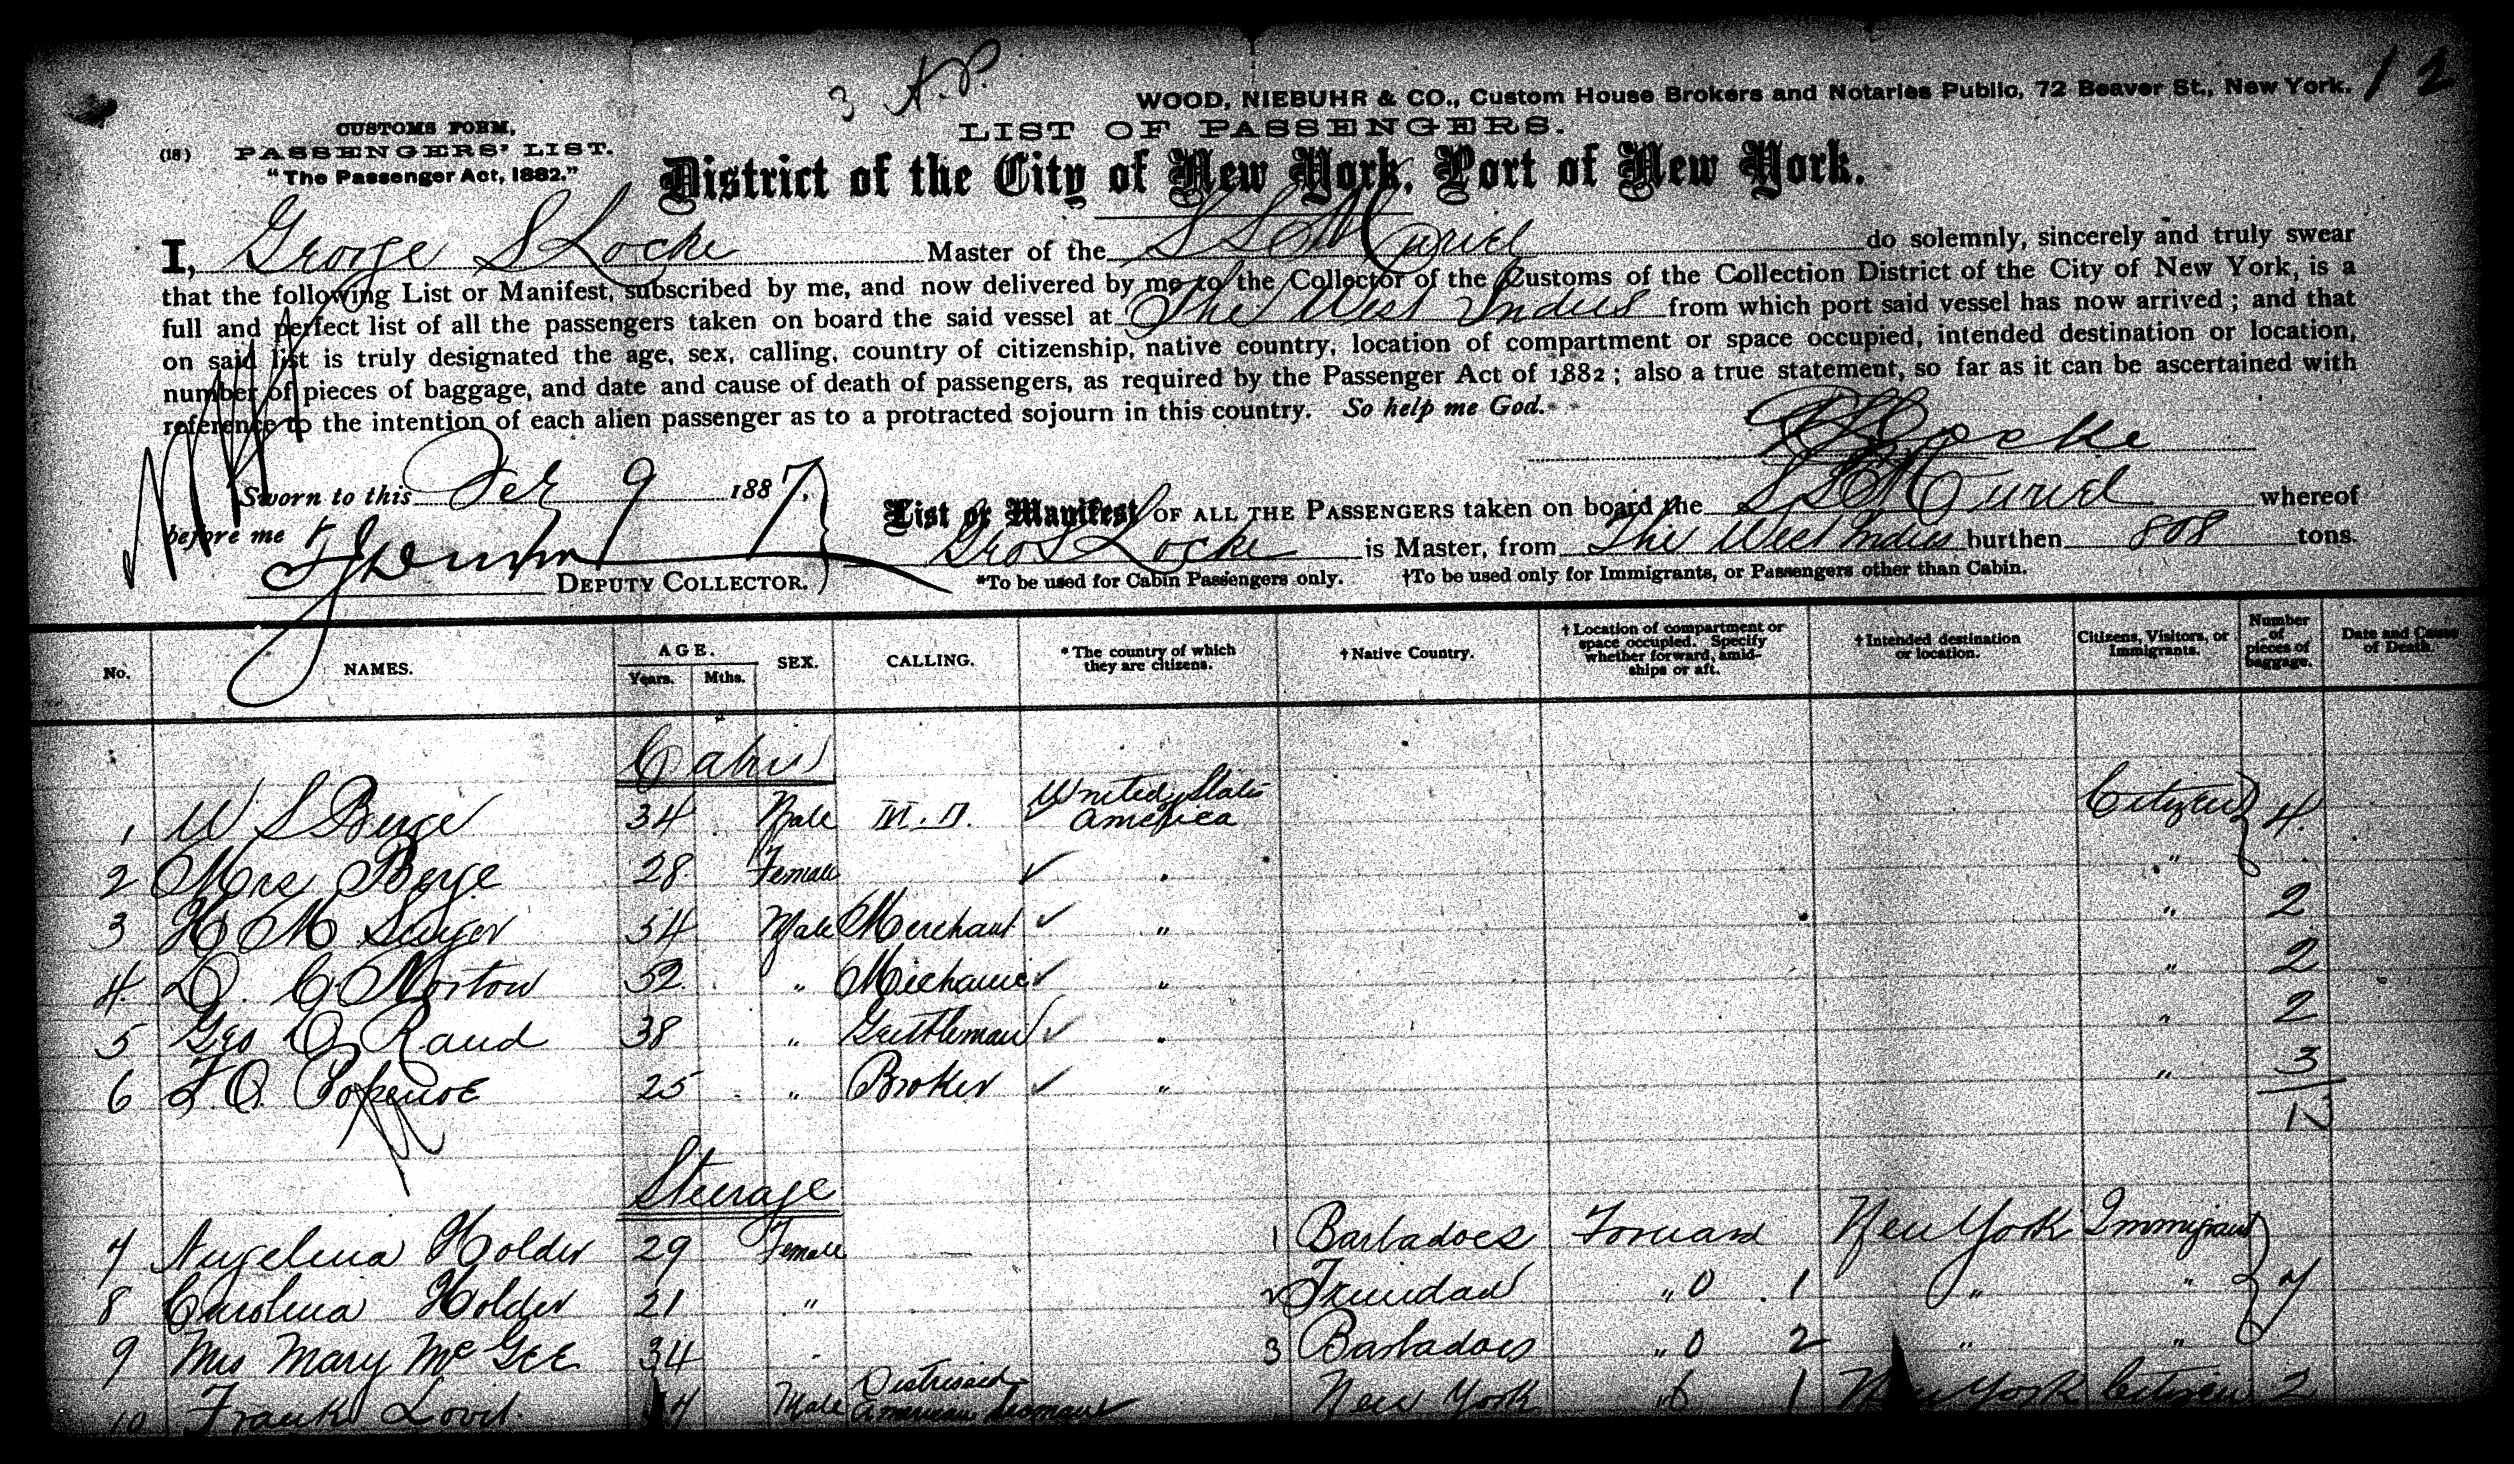 3 A.P.
12
WOOD, NIEBUHR & CO., Custom House Brokers and Notaries Public, 72 Beaver St., New York.
LIST OF PASSENGERS.
CUSTOMS FORM,
(18) PASSENGERS' LIST.
"The Passenger Act, 1882."
District of the City of New York, Port of New York.
I, George S Locke Master of the S S Muriel do solemnly, sincerely and truly swear
that the following List or Manifest, subscribed by me, and now delivered by me to the Collector of the Customs of the Collection District of the City of New York, is a
full and perfect list of all the passengers taken on board the said vessel at The West Indies from which port said vessel has now arrived; and that
on said list is truly designated the age, sex, calling, country of citizenship, native country, location of compartment or space occupied, intended destination or location,
number of pieces of baggage, and date and cause of death of passengers, as required by the Passenger Act of 1882; also a true statement, so far as it can be ascertained with
reference to the intention of each alien passenger as to a protracted sojourn in this country. So help me God.
Locke
Sworn to this Feb 9 1887,
before me
DEPUTY COLLECTOR.
List or Manifest OF ALL THE PASSENGERS taken on board the S S Muriel whereof
Geo S Locke is Master, from The West Indies burthen 808 tons.
*To be used for Cabin Passengers only. †To be used only for Immigrants, or Passengers other than Cabin.
No. NAMES. AGE. Years. Mths. SEX. CALLING. *The country of which they are citizens. †Native Country. †Location of compartment or space occupied. Specify whether forward, amidships or aft. †Intended destination or location. Citizens, Visitors, or Immigrants. Number of pieces of baggage. Date and Cause of Death.
Cabin
1 W S Berge 34 Male M.D. United States America Citizen 4
2 Mrs Berge 28 Female " "
3 H M 54 Male Merchant " " 2
4 D. C Norton 52 " Mechanic " " 2
5 Geo D Rand 38 " Gentleman " " 2
6 F.O. Popenoe 25 " Broker " " 3
13
Steerage
7 Angelina Holder 29 Female — 1 Barbadoes Forward New York Immigrant
8 Carolina Holder 21 " 2 Trinidad " 0 1 " " 7
9 Mrs Mary McGee 34 " 3 Barbadoes " 0 2 " "
10 Frank Lovit Male Distressed American Seaman New York " 1 New York Citizen 2